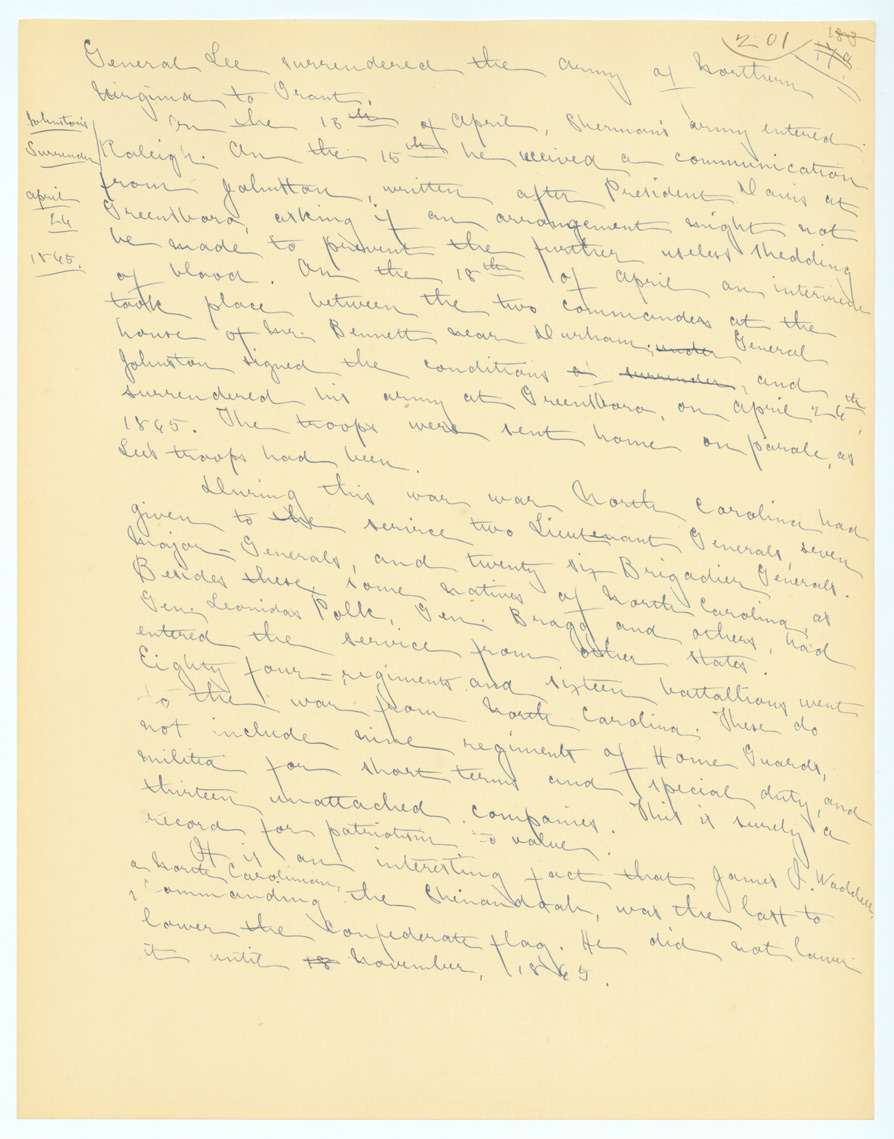 201
General Lee surrendered the army of Northern
Virginia to Grant.
On the 13th of April, Sherman's army entered
Johnston's
Surrender
April
26
1865.
Raleigh. On the 15th he received a communication
from Johnston, written after President Davis at
Greensboro, asking if an arrangement might not
be made to prevent the further useless shedding
of blood. On the 18th of April an interview
took place between the two commanders at the
house of Mr. Bennett near Durham; under General
Johnston signed the conditions of surrender, and
surrendered his army at Greensboro, on April 26th,
1865. The troops were sent home on parole, as
Lee's troops had been.
During this war war North Carolina had
given to the service two Lieutenant Generals, seven
Major-Generals, and twenty six Brigadier Generals.
Besides these, some natives of North Carolina, as
Gen. Leonidas Polk, Gen. Bragg and others, had
entered the service from other states.
Eighty four-regiments and sixteen battaltions went
to the war from North Carolina. These do
not include nine regiments of Home Guards,
militia for short terms and special duty, and
thirteen unattached companies. This is surely a
record for patriotism to value.
It is an interesting fact that James I. Waddell,
a North Carolinian,
commanding the Shenandoah, was the last to
lower the Confederate flag. He did not lower
it until 18 November, 1865.